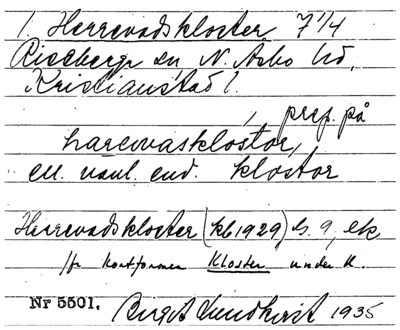 1. Herrevadskloster 7 1/4
Riseberga sn, N. Åsbo hd,
Kristianstad l.
, prep. på
harévasklostər,
en. vanl. end. klostər
Herrevadskloster (kb 1929) b. 9, ek
/jr kortformen Kloster under K.
Nr 5501. Birgit Lundkvist 1935